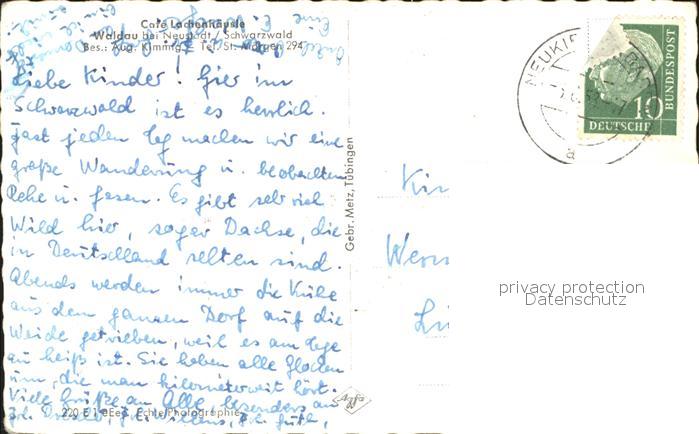 Café Lachenhäusle
Waldau bei Neustadt / Schwarzwald
Bes.: Aug. Kimmig Tel. St. Märgen 294
Liebe Kinder! Hier im
Schwarzwald ist es herrlich.
Fast jeden Tag machen wir eine
große Wanderung u. beobachten
Rehe u. Hasen. Es gibt sehr viel
Wild hier, sogar Dachse, die
in Deutschland selten sind.
Abends werden immer die Kühe
aus dem ganzen Dorf auf die
Weide getrieben, weil es am Tage
zu heiß ist. Sie haben alle Glocken
um, die man kilometerweit hört.
Viele Grüße an Alle, besonders an
220 E 1 Echte Photographie
Gebr. Metz, Tübingen
NEUKI
10
DEUTSCHE
BUNDESPOST
a
Kin
privacy protection
Datenschutz